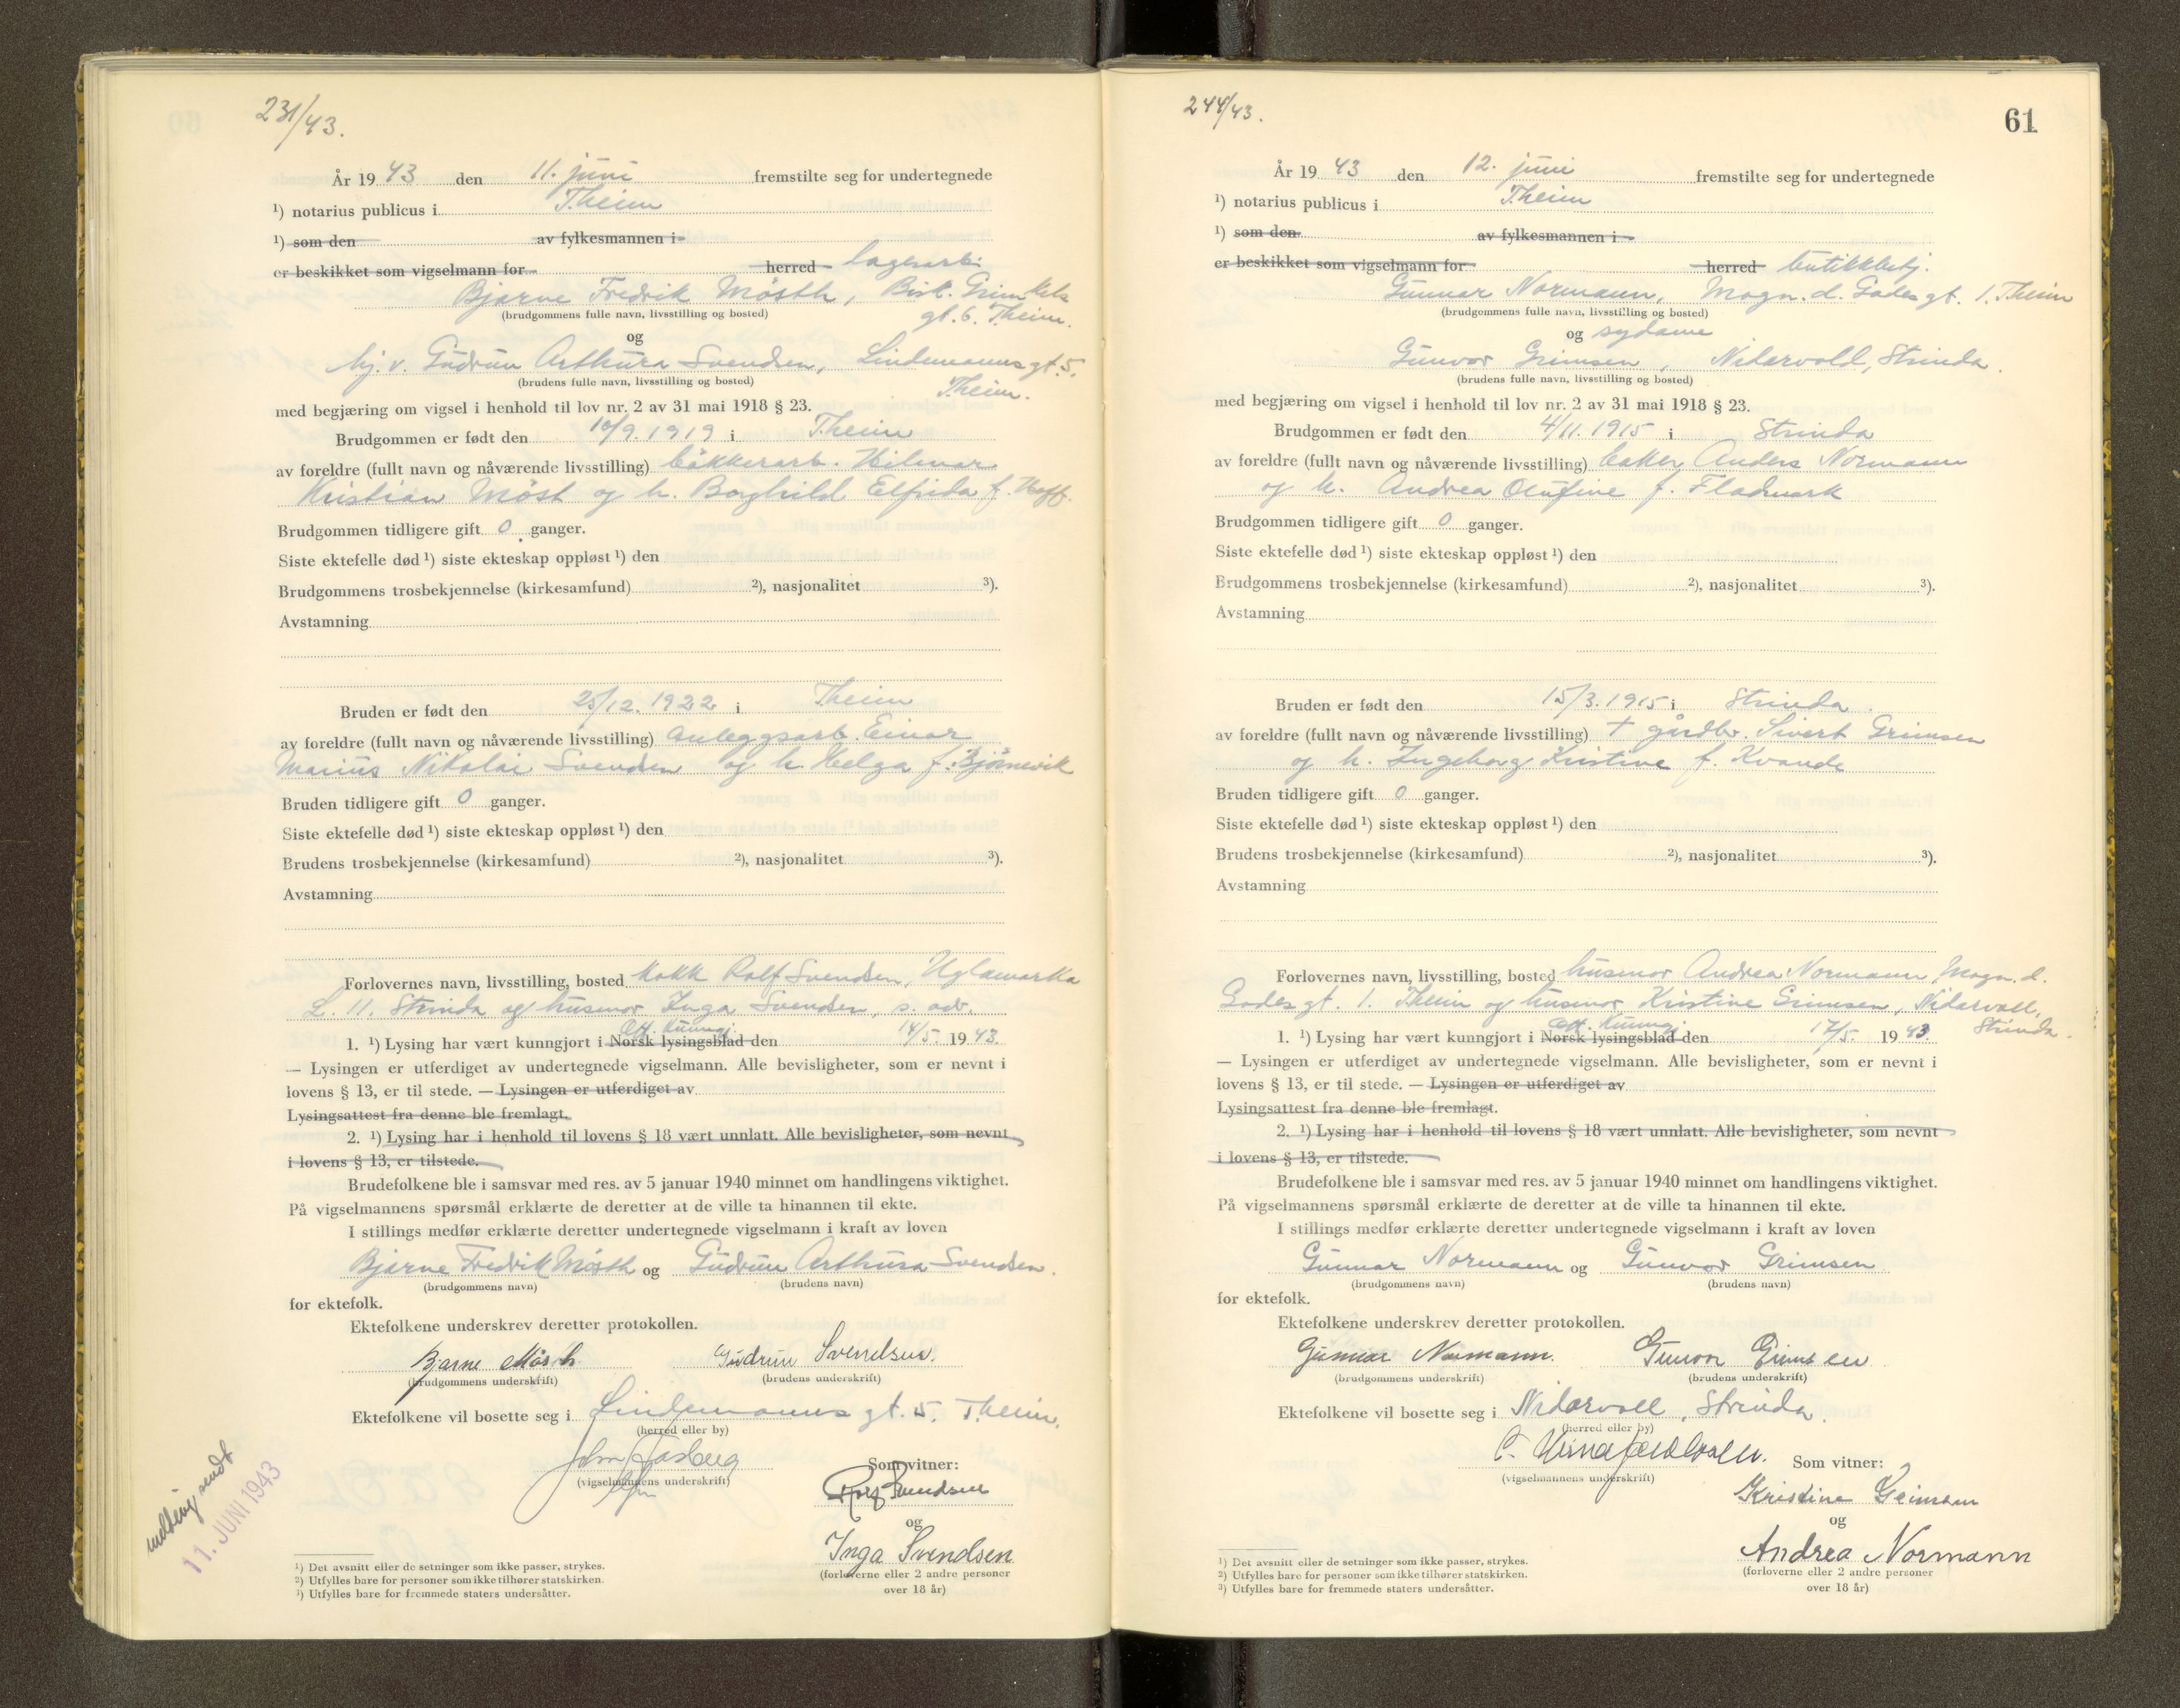 231/43.
År 19 43 den 11. juni fremstilte seg for undertegnede
¹) notarius publicus i Theim
¹) som den av fylkesmannen i
er beskikket som vigselmann for herred lagerarb.
Bjarne Fredrik Mösth, Bisk. Grimkels
(brudgommens fulle navn, livsstilling og bosted) gt. 6. Theim.
og
hj. v. Gudrun Arthura Svendsen, Lindemanns gt. 5,
(brudens fulle navn, livsstilling og bosted) Theim.
med begjæring om vigsel i henhold til lov nr. 2 av 31 mai 1918 § 23.
Brudgommen er født den 10/9. 1919 i Theim
av foreldre (fullt navn og nåværende livsstilling) bökkerarb. Hilmar
Kristian Möst og h. Borghild Elfrida f. Hoff.
Brudgommen tidligere gift 0 ganger.
Siste ektefelle død ¹) siste ekteskap oppløst ¹) den
Brudgommens trosbekjennelse (kirkesamfund) ²), nasjonalitet ³).
Avstamning
Bruden er født den 25/12. 1922 i Theim
av foreldre (fullt navn og nåværende livsstilling) Anleggsarb. Einar
Marius Nikolai Svendsen og h Helga f. Björnevik
Bruden tidligere gift 0 ganger.
Siste ektefelle død ¹) siste ekteskap oppløst ¹) den
Brudens trosbekjennelse (kirkesamfund) ²), nasjonalitet ³).
Avstamning
Forlovernes navn, livsstilling, bosted kokk Rolf Svendsen, Uglamarka
L. 11. Strinda og husmor Inga Svendsen, s. adr.
Off. Kunngj.
1. ¹) Lysing har vært kunngjort i Norsk lysingsblad den 14/5. 19 43.
— Lysingen er utferdiget av undertegnede vigselmann. Alle bevisligheter, som er nevnt i
lovens § 13, er til stede. — Lysingen er utferdiget av
Lysingsattest fra denne ble fremlagt.
2. ¹) Lysing har i henhold til lovens § 18 vært unnlatt. Alle bevisligheter, som nevnt
i lovens § 13, er tilstede.
Brudefolkene ble i samsvar med res. av 5 januar 1940 minnet om handlingens viktighet.
På vigselmannens spørsmål erklærte de deretter at de ville ta hinannen til ekte.
I stillings medfør erklærte deretter undertegnede vigselmann i kraft av loven
Bjarne Fredrik Mösth og Gudrun Arthura Svendsen.
(brudgommens navn) (brudens navn)
for ektefolk.
Ektefolkene underskrev deretter protokollen.
Bjarne Mösth Gudrun Svendsen.
(brudgommens underskrift) (brudens underskrift)
Ektefolkene vil bosette seg i Lindemanns gt. 5. Theim.
(herred eller by)
Som vitner:
(vigselmannens underskrift)
Rolf Svendsen
og
Inga Svendsen
(forloverne eller 2 andre personer
over 18 år)
melding sendt
11. JUNI 1943
¹) Det avsnitt eller de setninger som ikke passer, strykes.
²) Utfylles bare for personer som ikke tilhører statskirken.
³) Utfylles bare for fremmede staters undersåtter.
244/43.
61
År 19 43 den 12. juni fremstilte seg for undertegnede
¹) notarius publicus i Theim
¹) som den av fylkesmannen i
er beskikket som vigselmann for herred butikkbetj.
Gunnar Normann, Magn. d. Godes gt. 1. Theim
(brudgommens fulle navn, livsstilling og bosted)
og sydame
Gunvor Grimsen, Nidarvold, Strinda.
(brudens fulle navn, livsstilling og bosted)
med begjæring om vigsel i henhold til lov nr. 2 av 31 mai 1918 § 23.
Brudgommen er født den 4/11. 1915 i Strinda
av foreldre (fullt navn og nåværende livsstilling) baker Anders Normann
og h. Andrea Olufine f. Fladmark
Brudgommen tidligere gift 0 ganger.
Siste ektefelle død ¹) siste ekteskap oppløst ¹) den
Brudgommens trosbekjennelse (kirkesamfund) ²), nasjonalitet ³).
Avstamning
Bruden er født den 15/3. 1915 i Strinda.
av foreldre (fullt navn og nåværende livsstilling) † gårdbr. Sivert Grimsen
og h. Ingeborg Kristine f. Kvande
Bruden tidligere gift 0 ganger.
Siste ektefelle død ¹) siste ekteskap oppløst ¹) den
Brudens trosbekjennelse (kirkesamfund) ²), nasjonalitet ³).
Avstamning
Forlovernes navn, livsstilling, bosted husmor Andrea Normann Magn. d.
Godes gt. 1. Theim og husmor Kristine Grimsen, Nidarvoll,
Off. Kunngj. Strinda.
1. ¹) Lysing har vært kunngjort i Norsk lysingsblad den 17/5. 19 43.
— Lysingen er utferdiget av undertegnede vigselmann. Alle bevisligheter, som er nevnt i
lovens § 13, er til stede. — Lysingen er utferdiget av
Lysingsattest fra denne ble fremlagt.
2. ¹) Lysing har i henhold til lovens § 18 vært unnlatt. Alle bevisligheter, som nevnt
i lovens § 13, er tilstede.
Brudefolkene ble i samsvar med res. av 5 januar 1940 minnet om handlingens viktighet.
På vigselmannens spørsmål erklærte de deretter at de ville ta hinannen til ekte.
I stillings medfør erklærte deretter undertegnede vigselmann i kraft av loven
Gunnar Normann og Gunvor Grimsen
(brudgommens navn) (brudens navn)
for ektefolk.
Ektefolkene underskrev deretter protokollen.
Gunnar Normann. Gunvor Grimsen
(brudgommens underskrift) (brudens underskrift)
Ektefolkene vil bosette seg i Nidarvoll, Strinda.
(herred eller by)
Som vitner:
(vigselmannens underskrift)
Kristine Grimsen
og
Andrea Normann
(forloverne eller 2 andre personer
over 18 år)
¹) Det avsnitt eller de setninger som ikke passer, strykes.
²) Utfylles bare for personer som ikke tilhører statskirken.
³) Utfylles bare for fremmede staters undersåtter.